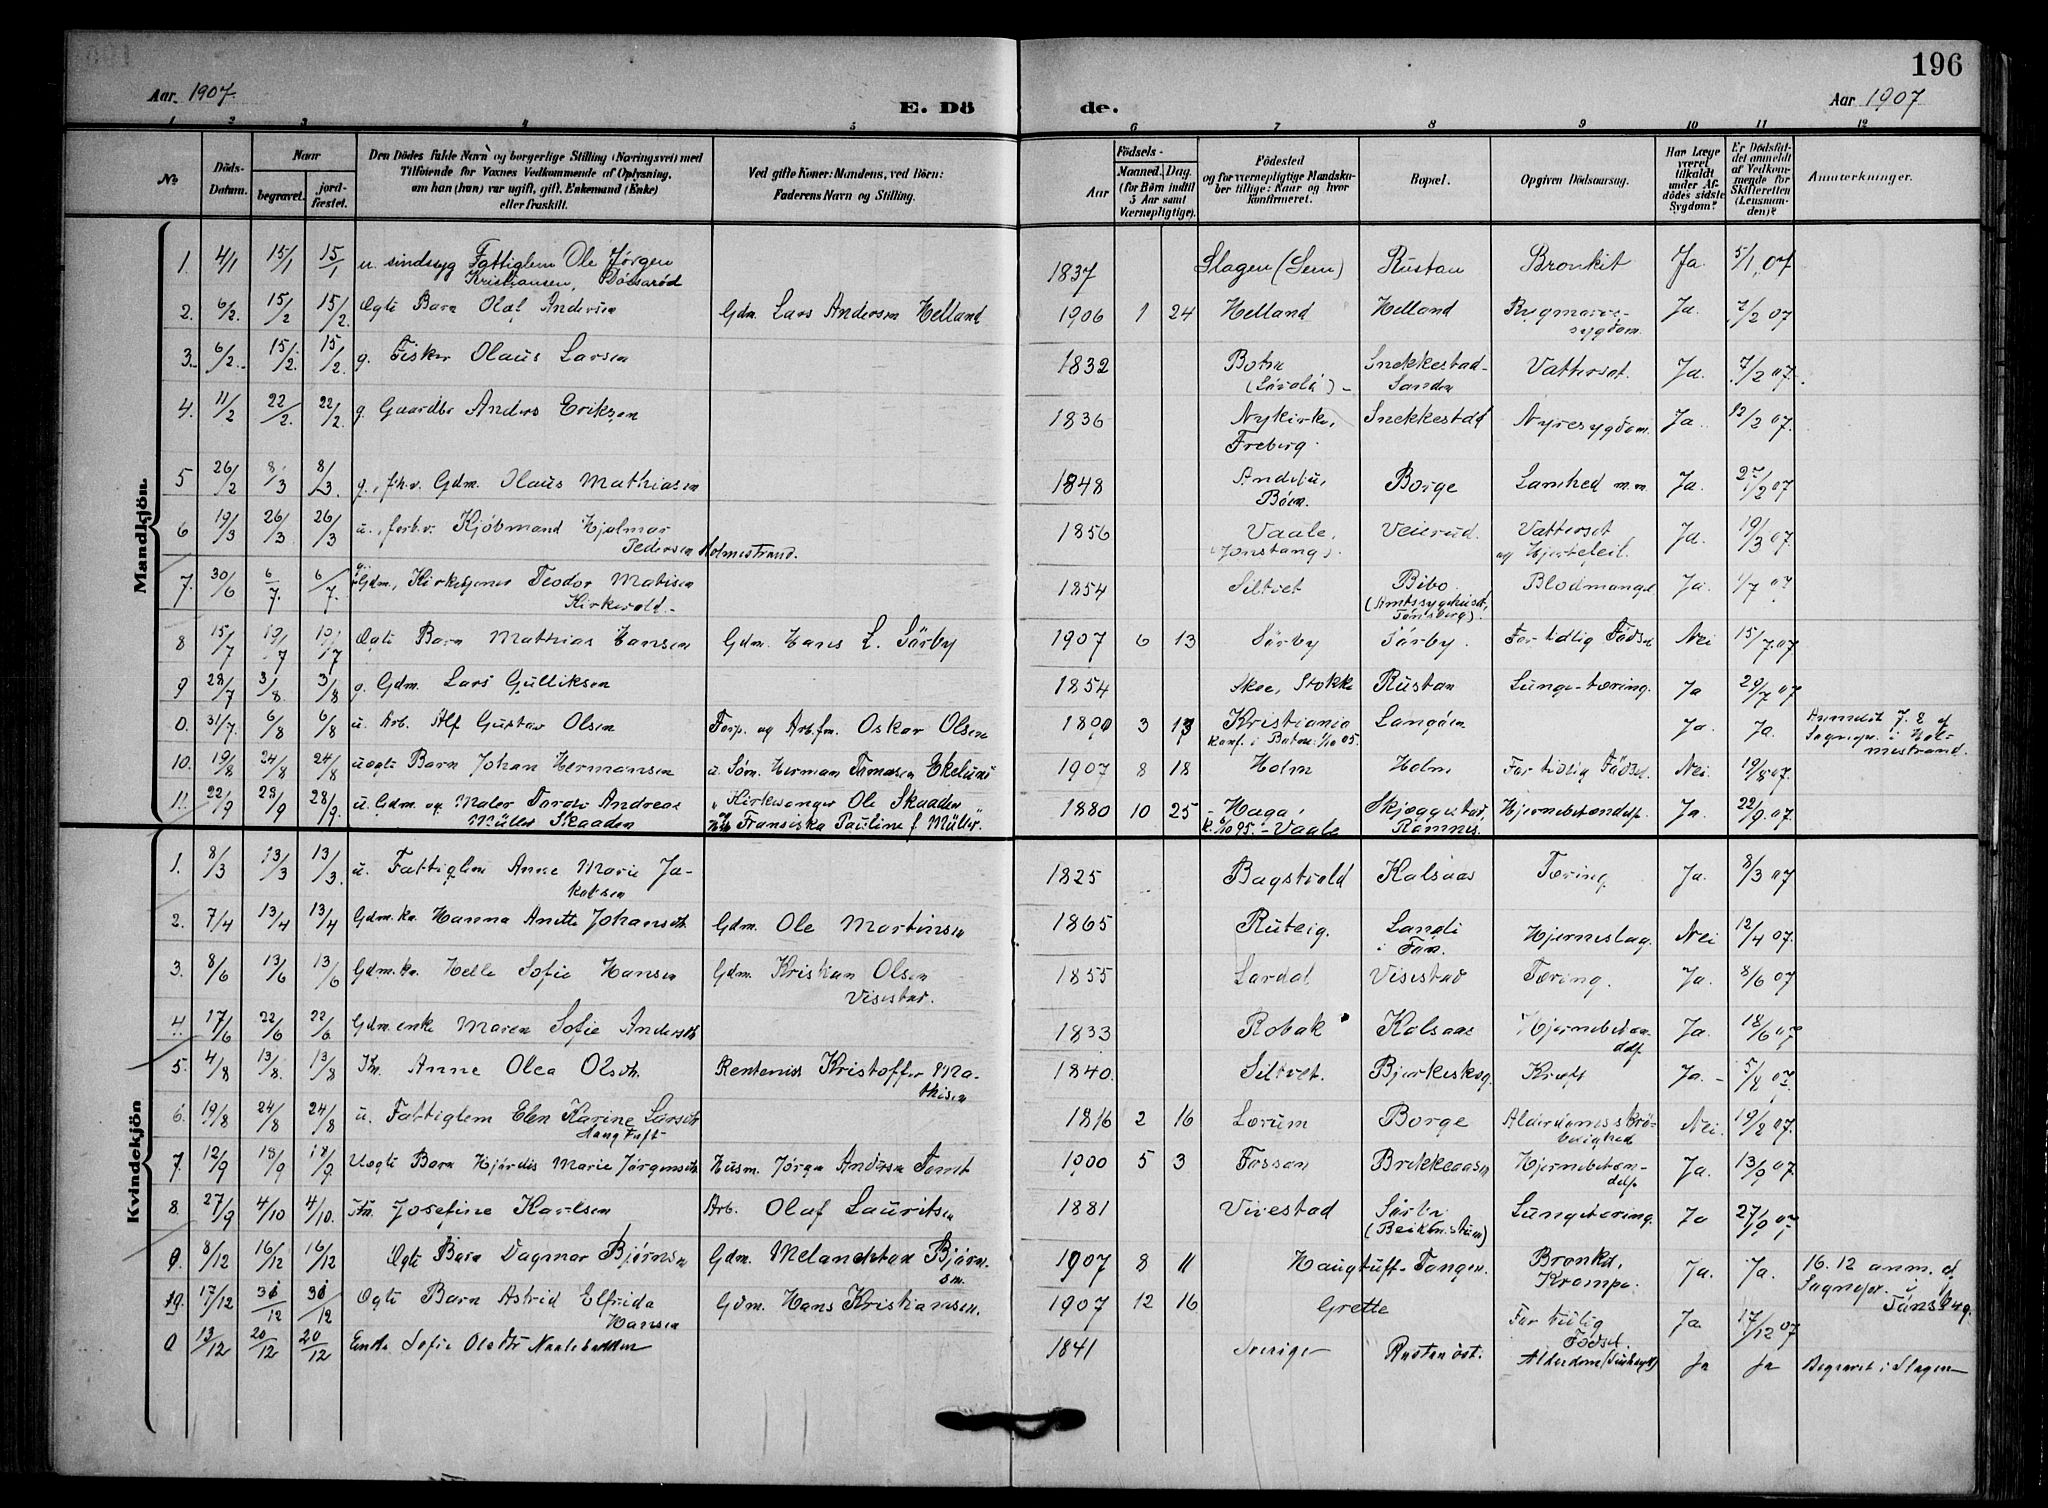 196
Aar 1907. E. Dö de. Aar 1907
1 2 3 4 5 6 7 8 9 10 11 12
No. Döds-Datum. Naar begravet. jord-fæstet. Den Dödes fulde Navn og borgerlige Stilling (Næringsvei) med Tilföiende for Voxnes Vedkommende af Oplysning, om han (hun) var ugift, gift, Enkemand (Enke) eller fraskilt. Ved gifte Koner: Mandens, ved Börn: Faderens Navn og Stilling. Födsels- Aar Maaned. Dag. (for Börn indtil 5 Aar samt Værnepligtige). Födested og for værnepligtige Mandskaber tillige: Naar og hvor konfirmeret. Bopæl. Opgiven Dödsaarsag. Har Læge været tilkaldt under Afdödes sidste Sygdom? Er Dödsfaldet anmeldt af Vedkommende for Skifteretten (Lensmanden)? Anmærkninger.
Mandkjön.
1. 4/1 15/1 15/1 u. sindssyg Fattiglem Ole Jørgen 1837 Slagen (Sem) Rustan Bronkit Ja. 5/1 07
Kristiansen,
2. 6/2. 15/2 15/2. Ægte Barn Olaf Andersen Gdm. Lars Andersen Helland 1906 1 24 Helland Helland Rygmarvs- Ja. 7/2 07
sygdom.
3. 6/2. 15/2. 15/2. g. Fisker Olaus Larsen 1832 Botne Snekkestad- Vattersot. Ja. 7/2 07.
Sanden
4. 11/2 22/2. 22/2. g. Gaardbr Anders Eriksen 1836 Nykirke, Snekkestad Nyresygdom. Ja. 12/2 07.
Freberg.
5 26/2 8/3 8/3. g., fh.v. Gdm. Olaus Mathiasen 1848 Borge Lamhed m.m. Ja. 27/2 07
6 19/3 26/3 26/3 u., forh.v. Kjöbmand Hjalmar 1856 Vaale, Veierud. Vattersot Ja. 19/3 07.
Pedersen Holmestrand. (Jonstang). og Hjerteleil.
7. 30/6 6/7. 6/7. Gdm., Kirketjener Teodor Matisen 1854 Siltvet Bibo Blodmangel Ja. 1/7 07
Kirkevold. (Amtssygehuset, Tönsberg).
8 15/7 19/7 19/7 Ægte Barn Mathias Hansen Gdm. Hans L. Sörby 1907 6 13 Sörby Sörby. For tidlig Födsel Nei 15/7.07
9 28/7 3/8 3/8 g. Gdm. Lars Gulliksen 1854 Skee, Stokke Rustan Lunge-tæring. Ja 29/7 07
0. 31/7. 6/8 6/8 u. Arb. Alf Gustav Olsen Forp. og Arb.fm. Oskar Olsen 1890 3 13 Kristiania Langöen Ja. Ja. Anmeldt 7.8 af
Konf. i Botne 1/10 05. Sognepr. i Hol-
mestrand.
10. 19/8 24/8 24/8 uægte Barn Johan Hermansen u. Søm. Herman Tomasen Ekelund 1907 8 18 Holm Holm For tidlig Födsel Nei 19/8 07.
11. 22/9 28/9 28/9. u. Gdm. og Maler Andreas Kirkesanger Ole Skaaden 1880 10 25 Haga Skjæggestad, Hjernebetændelse Ja. 22/9.07.
Müller Skaaden Fransiska Pauline f. Müller. 95.-Vaale Ramnes.
Kvindekjön
1. 8/3 13/3 13/3. u. Fattiglem Anne Marie Ja- 1825 Bagstvold Kalsaas Tæring. Ja. 8/3 07
kobsen
2. 7/4 13/4 13/4 Gdm.ka. Hanna Anette Johansdt. Gdm. Ole Martinsen 1865 Ruteig. Landi Hjerneslag. Nei 12/4 07.
3. 8/6 13/6 13/6 Gdm.ka. Helle Sofie Hansen Gdm. Kristian Olsen 1855 Lardal Visestad Tæring. Ja. 8/6 07
Visestad.
4. 17/6 22/6 22/6. Gdm.enke Maren Sofie Andersdt. 1833 Robak Kalsaas Hjernebetæn- Ja. 18/6 07
delse
5. 4/8 13/8. 13/8 Anne Olea Olsdt. Rentenist Kristoffer Ma- 1840. Siltvet. Bjerkeskog. Kræft Ja.- 5/8 07.
thisen
6. 19/8 24/8 24/8 u. Fattiglem Elen Karine Larsdt 1816 2 16 Lørum Borge Alderdomsskrö- Nei. 19/8 07.
Haugtuft- belighed
7. 12/9 18/9 18/9. Uægte Barn Hjördis Marie Jörgensdt. Husm. Jörgen Andersen Tomt 1900 5 3 Fossan Brekkeaasen Hjernebetæn- Ja. 13/9 07
delse
8. 27/9 4/10 4/10. Josefine Karlsen Arb. Olaf Lauritsen 1881 Virestad Sörbe Lungetæring. Ja 27/9 07
9. 8/12 16/12 16/12 Ægte Barn Dagmar Bjørnsen Gdm. Melanchton Bjørn- 1907 8 11 Haugtuft-Tangen. Bronkit, Ja. Ja. 16.12 anm. af
sen. Krampe. Sognepr. i
Tönsberg.
10. 17/12 30/12 30/12 Ægte Barn Astrid Elfrida Gdm. Hans Kristiansen. 1907 12 16 Grette For tidlig Ja. 17/12 07
Hansen Födsel.
0 13/12 20/12 20/12 Enke Sofie Olsdtr 1841 Sverige Rustan öst. Alderdom Ja Ja Begravet i Slagen